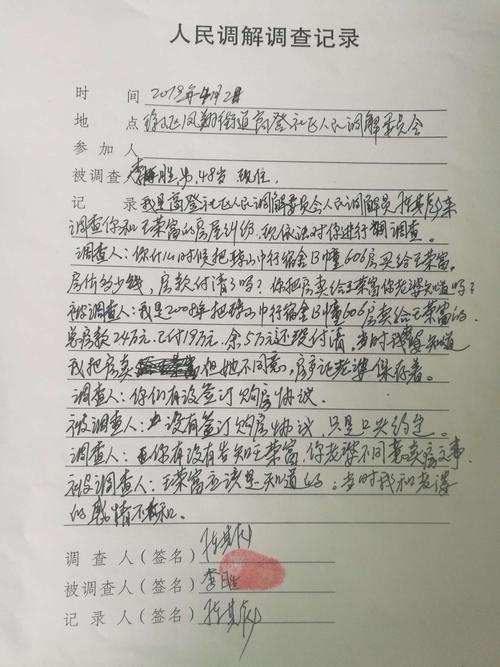 人民调解调查记录
时 间 2019年4月2日
地 点 琼山区凤翔街道高登社区人民调解委员会
参加人
被调查人 李胜,男,48岁 现住,
记 录 我是高登社区人民调解委员会人民调解员 来
调查你和王荣富的房屋纠纷,现依法对你进行调查。
调查人:你什么时候把琼山中行宿舍B幢606房买给王荣富。
房价多少钱,房款付清了吗?你把房卖给王荣富你老婆知道吗?
被调查人:我是2008年把琼山中行宿舍B幢606房卖给王荣富
总房款24万元,已付19万元,余5万元还没付清,当时我老婆知道
我把房卖 但她不同意,房产证老婆保存着。
调查人:你们有没签订购房协议。
被调查人:没有签订购房协议,只是口头约定。
调查人:你有没有告知王荣富,你老婆不同意卖房之事。
被调查人:王荣富应该是知道的。当时我和老婆
的感情不和。
调查人(签名)
被调查人(签名)李胜
记录人(签名)